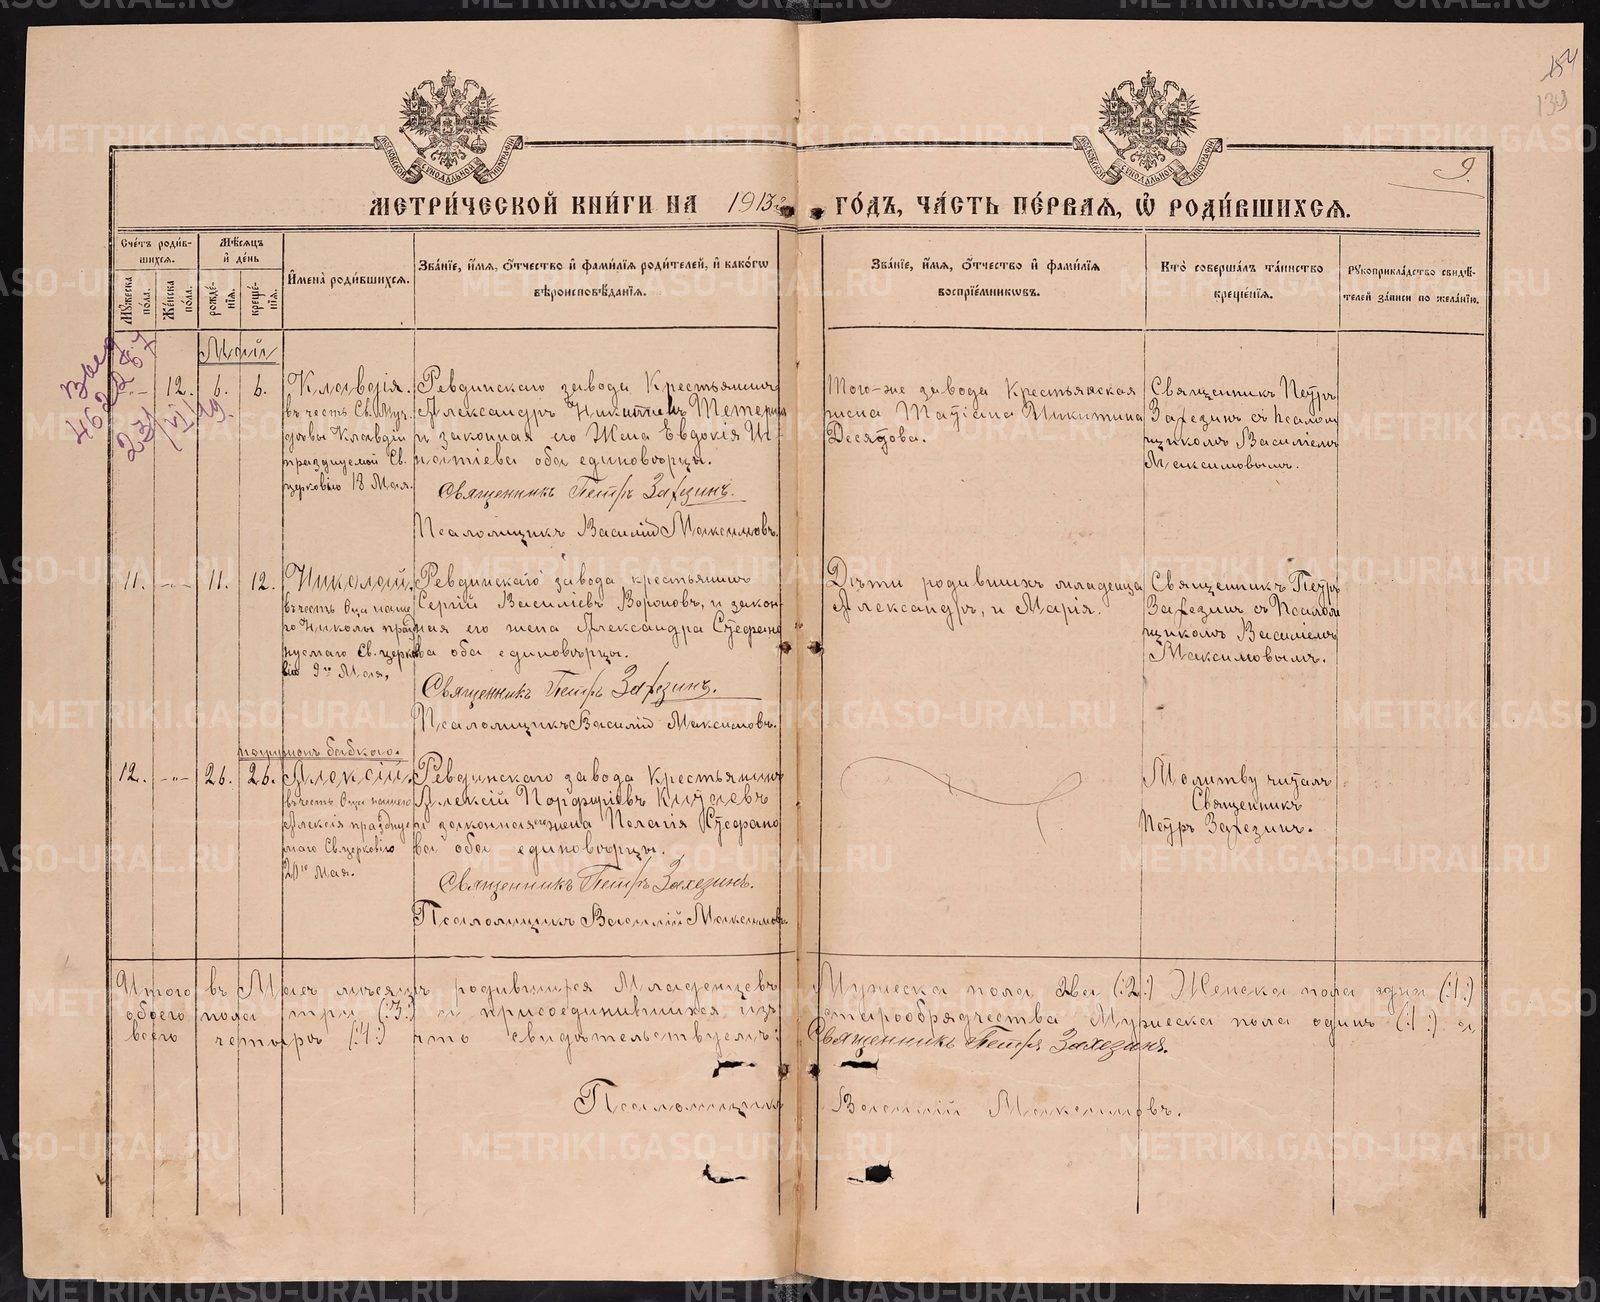 154
139
9.
МЕТРИ́ЧЕСКОЙ КНИ́ГИ НА 1913 г. ГО́ДЪ, ЧА́СТЬ ПЕ́РВАѦ, Ѽ РОДИ́ВШИХСѦ.
Сче́тъ роди́вшихсѧ.
Мꙋ́жеска по́ла.
Же́нска по́ла.
Мѣ́сѧцъ и҆ де́нь
рожде́нїѧ.
креще́нїѧ.
И҆мена̀ роди́вшихсѧ.
Зва́нїе, и҆́мѧ, ѻ҆́тчество и҆ фами́лїѧ роди́телей, и҆ како́гѡ вѣроисповѣ́данїѧ.
Зва́нїе, и҆́мѧ, ѻ҆́тчество и҆ фами́лїѧ воспрїе́мникѡвъ.
Кто̀ соверша́лъ та́инство креще́нїѧ.
Рꙋкоприкла́дство свидѣ́телей за́писи по жела́нїю.
Май
12. 6. 6.
Клавдія.
въ честь Св. Муч.
Клавдіи
празднуемой Св.
церковію 18 Мая.
Ревдинскаго завода Крестьянинъ
Александръ Никитинъ
и законная его Жена Евдокія Иг-
натіева оба единоверцы.
Священникъ Петръ Захезинъ.
Псаломщикъ Василій Максимовъ.
Того-же завода Крестьянская
жена Татіана Никитина
Десятова.
Священникъ Петръ
Захезинъ съ Псалом
щикомъ Василіемъ
Максимовымъ.
11. —„— 11. 12.
Николай.
въ честь Отца наше
го Николы празд
нуемаго Св. церко
вію 9го Мая,
Ревдинскаго завода крестьянинъ
Сергій Василіевъ Вороновъ, и закон-
ная его жена Александра Стефано
ва оба единовѣрцы.
Священникъ Петръ Захезинъ.
Псаломщикъ Василій Максимовъ.
Дѣти родившихъ младенца
Александръ, и Марія.
Священникъ Петръ
Захезинъ съ Псалом
щикомъ Василіемъ
Максимовымъ.
погружонъ бабкою.
12. —„— 26. 26.
Алексій.
въ честь Отца нашего
Алексія праздну
маго Св. церковію
20го мая.
Ревдинскаго завода Крестьянинъ
Алексій Порфиріевъ
и законная его жена Пелагія Стефано
ва оба единовѣрцы.
Священникъ Петръ Захезинъ.
Псаломщикъ Василій Максимовъ
Молитву читалъ
Священникъ
Петръ Захезинъ.
Итого въ Маѣ мѣсяцѣ родившихся Младенцевъ Мужеска пола два (:2:) Женска пола одна (:1:)
обоего пола три (:3:) и присоединившихся изъ старообрядчества Мужеска пола одинъ (:1:) а
всего четыре (:4:) что свидѣтельствуемъ: Священникъ Петръ Захезинъ.
Псаломщикъ Василій Максимовъ.
METRIKI.GASO-URAL.RU